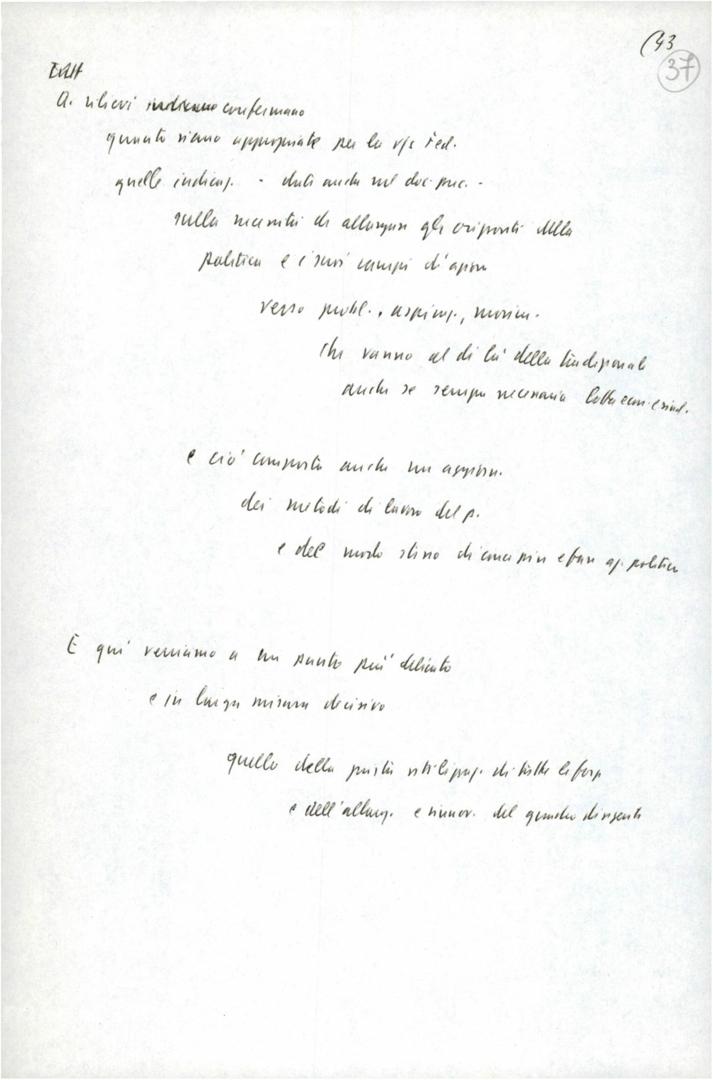 (43
37
A. rilievi indicano confermano
quanto siano appropriate per la v/s Fed.
quelle indicaz. - dati anche nel doc. prec. -
sulla necessità di allargare gli orizzonti della
politica e i suoi campi d'azione
verso probl., aspiraz., movim.
che vanno al di là della tradizionale
anche se sempre necessaria lotta econ. e sind.
e ciò comporta anche un aggiorn.
dei metodi di lavoro del p.
e del modo stesso di concepire e fare az. politica
E qui veniamo a un punto più delicato
e in larga misura decisivo
quello della giusta utilizzaz. di tutte le forze
e dell'allarg. e rinnov. del quadro dirigente